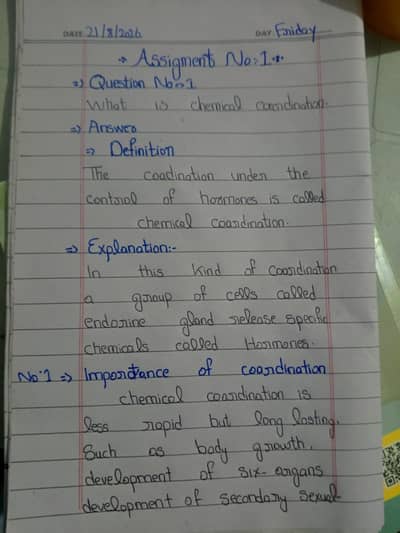 DATE 21/8/2026 DAY Friday
Assigment No:1
⇒ Question No:1
What is chemical coordination.
⇒ Answer
⇒ Definition
The coadination under the
control of hormones is called
chemical coordination.
⇒ Explanation:-
In this kind of coordination
a group of cells called
endorine gland release specific
chemicals called Hormones.
No:1 ⇒ Importance of coordination
chemical coordination is
less rapid but long lasting.
Such as body growth,
development of six-organs
development of secondary sexual